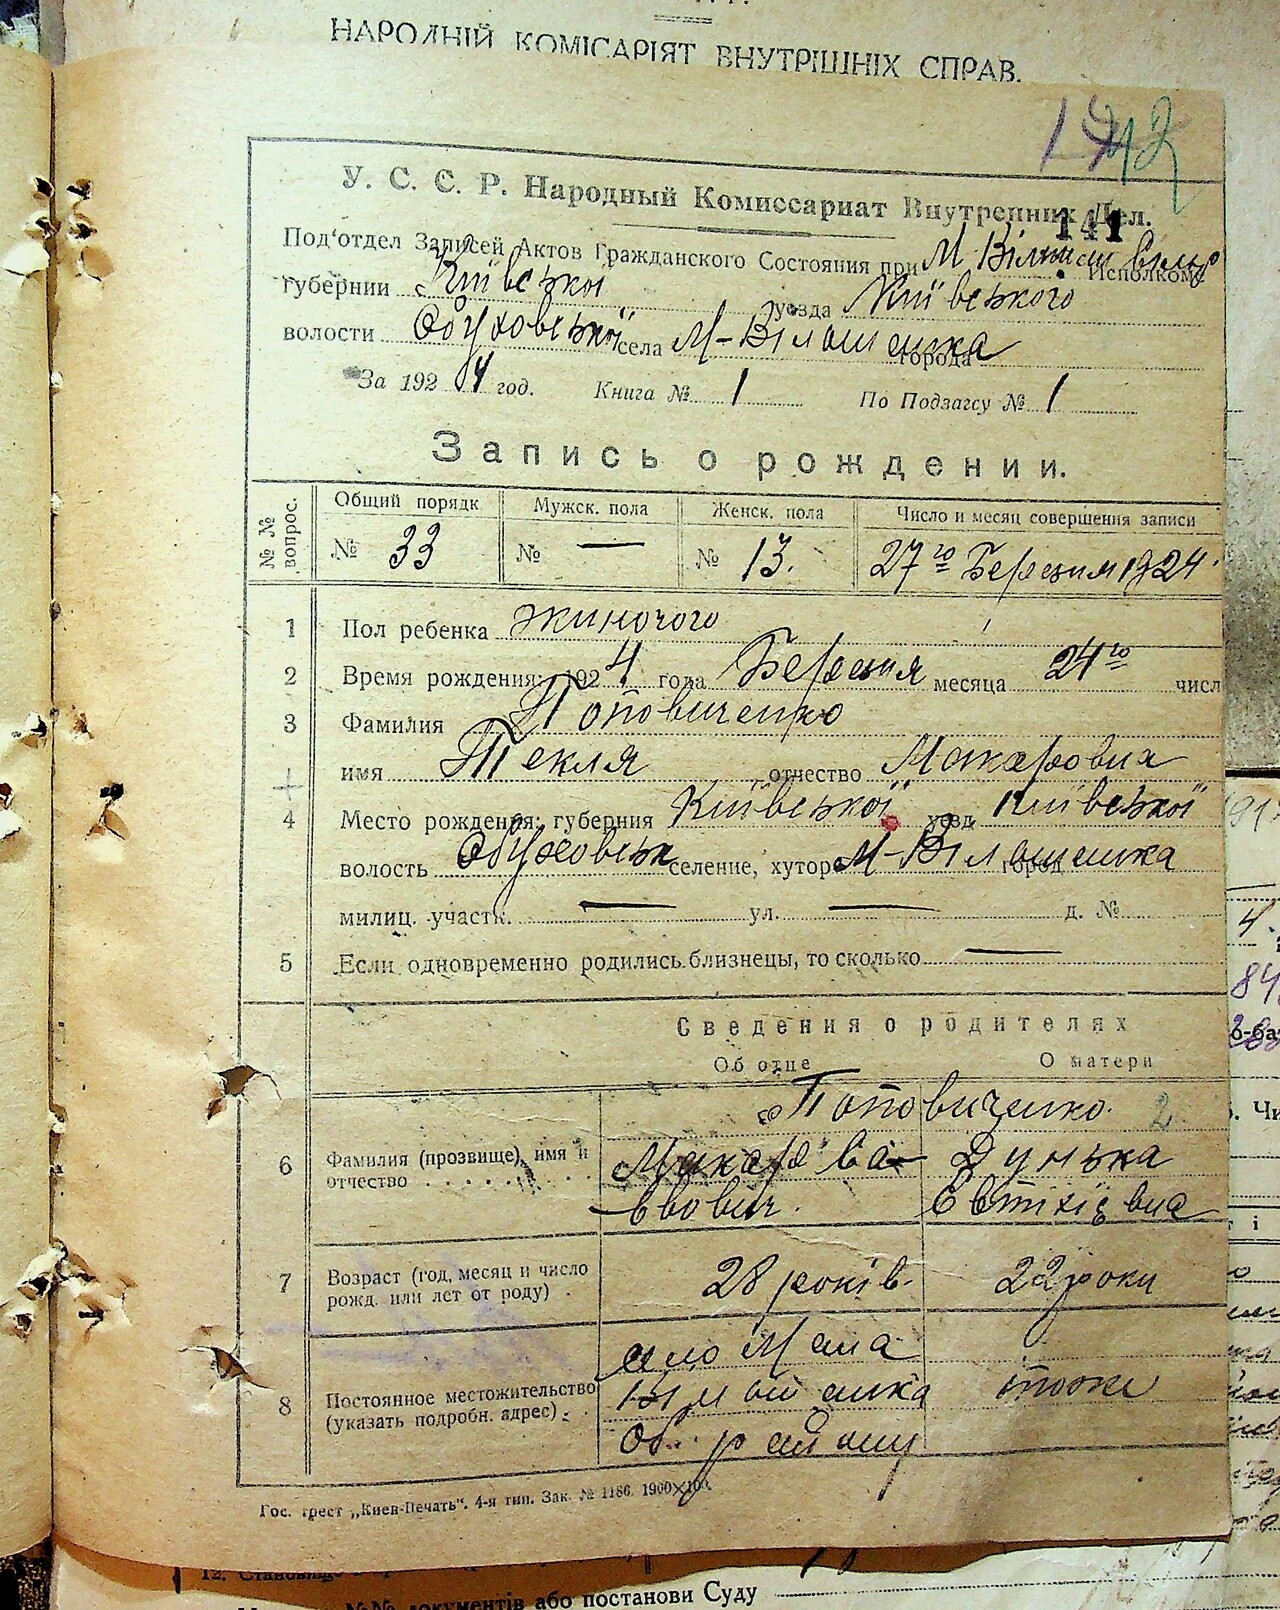 НАРОДНІЙ КОМІСАРІЯТ ВНУТРІШНІХ СПРАВ.
142
У. С. С. Р. Народный Комиссариат Внутренних Дел.
141
Под'отдел Записей Актов Гражданского Состояния при М Вільшан Исполкоме
губернии Київської уезда Київського
волости Обуховської села М-Вілшанка города
За 1924 год. Книга № 1 По Подзагсу № 1
Запись о рождении.
№ № вопрос. Общий порядк Мужск. пола Женск. пола Число и месяц совершения записи
№ 33 № — № 13. 27го Березня 1924
1 Пол ребенка жиночого
2 Время рождения: 1924 года Березня месяца 24го числ
3 Фамилия Поповиченко
имя Текля отчество Макаровна
4 Место рождения: губерния Київської уезд Київської
волость Обуховськ селение, хутор М-Вілшанка город
милиц. участк. — ул. — д. №
5 Если одновременно родились близнецы, то сколько —
Сведения о родителях
Об отце О матери
Поповиченко. 2
6 Фамилия (прозвище), имя и Макар Са- Дунька
отчество ввович. Євтихієвна
7 Возраст (год, месяц и число 28 років. 22 роки
рожд. или лет от роду)
село Мала
8 Постоянное местожительство Вільшанка тоже
(указать подробн. адрес) Об. району
Гос. трест „Киев-Печать". 4-я тип. Зак. № 1186. 1900×100.
12. Становище
№№ документів або постанови Суду